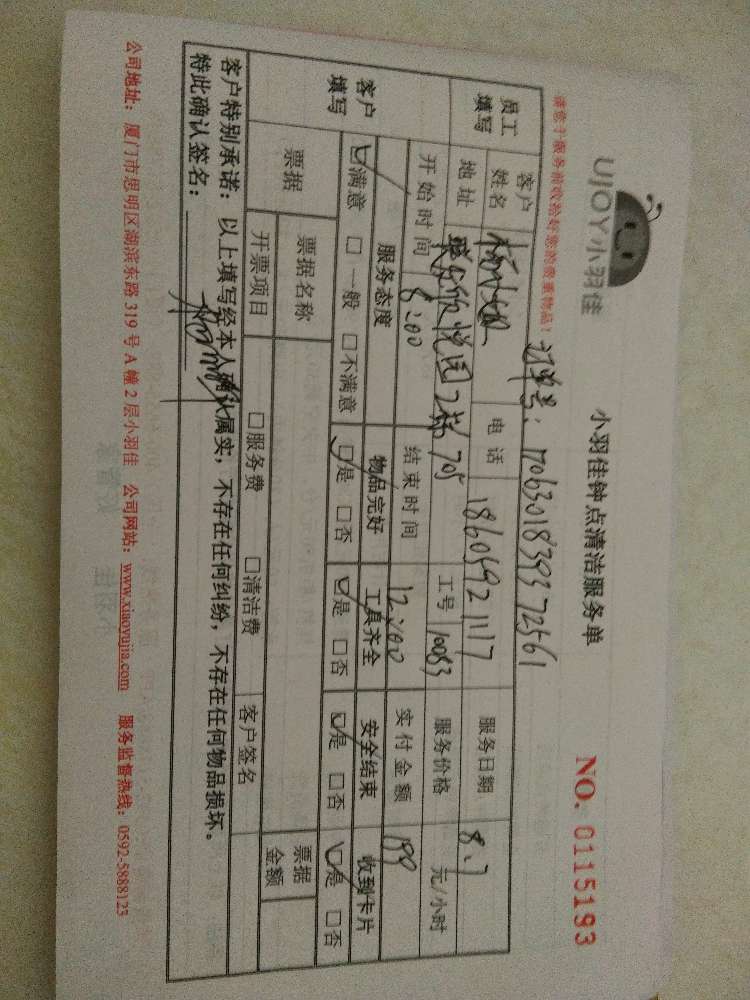 UJOY小羽佳
小羽佳钟点清洁服务单
NO. 0115193
请您于服务前收拾好您的贵重物品!
订单号: 170630183937 2561
员工填写 客户姓名 杨小姐 电话 18605921117 服务日期 8.7
地址 联发欣悦园2栋705 工号 10083 服务价格 元/小时
开始时间 8:00 结束时间 12:00 实付金额 199
客户填写 服务态度 物品完好 工具齐全 安全结束 收到卡片
☑满意 □一般 □不满意 ☑是 □否 ☑是 □否 ☑是 □否 ☑是 □否
票据 票据名称 票据金额
开票项目 □服务费 □清洁费 客户签名
客户特别承诺: 以上填写经本人确认属实, 不存在任何纠纷, 不存在任何物品损坏。
特此确认签名:
公司地址: 厦门市思明区湖滨东路319号A幢2层小羽佳 公司网站: www.xiaoyujia.com 服务监督热线: 0592-5888123